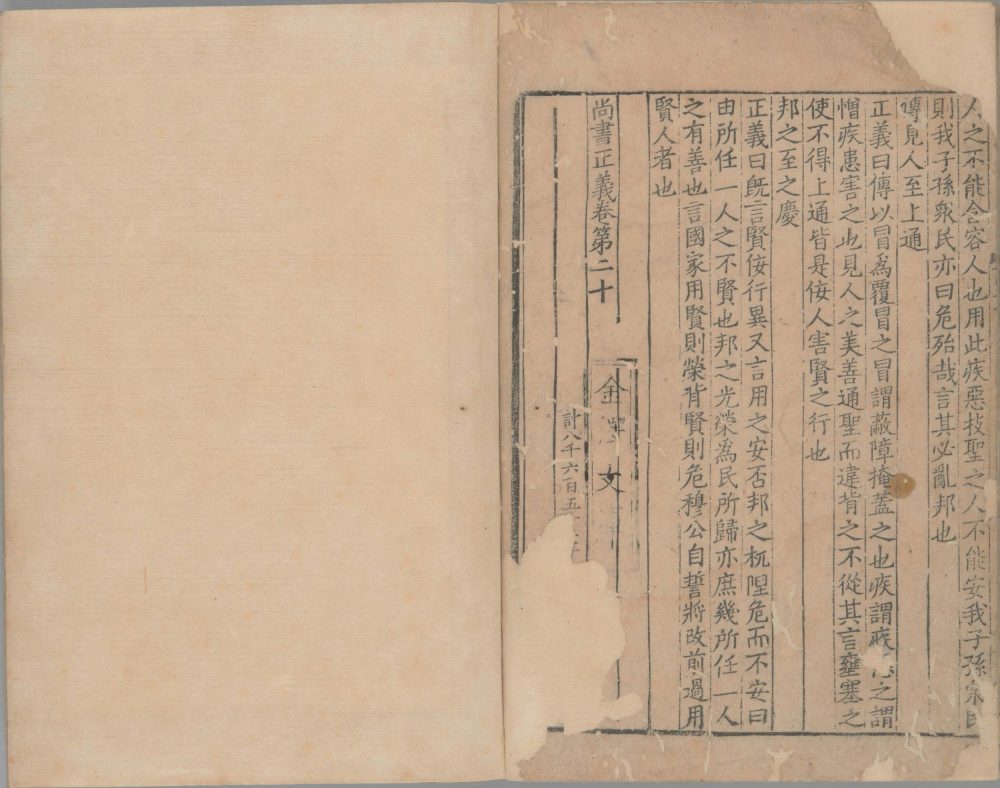 人之不能含容人也用此疾惡技聖之人不能安我子孫衆民
則我子孫衆民亦曰危殆哉言其必亂邦也
傳見人至上通
正義曰傳以冒爲覆冒之冒謂蔽障掩蓋之也疾謂疾之謂
憎疾患害之也見人之美善通聖而違背之不從其言壅塞之
使不得上通皆是佞人害賢之行也
邦之至之慶
正義曰旣言賢佞行異又言用之安否邦之杌隉危而不安曰
由所任一人之不賢也邦之光榮爲民所歸亦庶幾所任一人
之有善也言國家用賢則榮背賢則危穆公自誓將改前過用
賢人者也
尚書正義卷第二十
計八千六百五